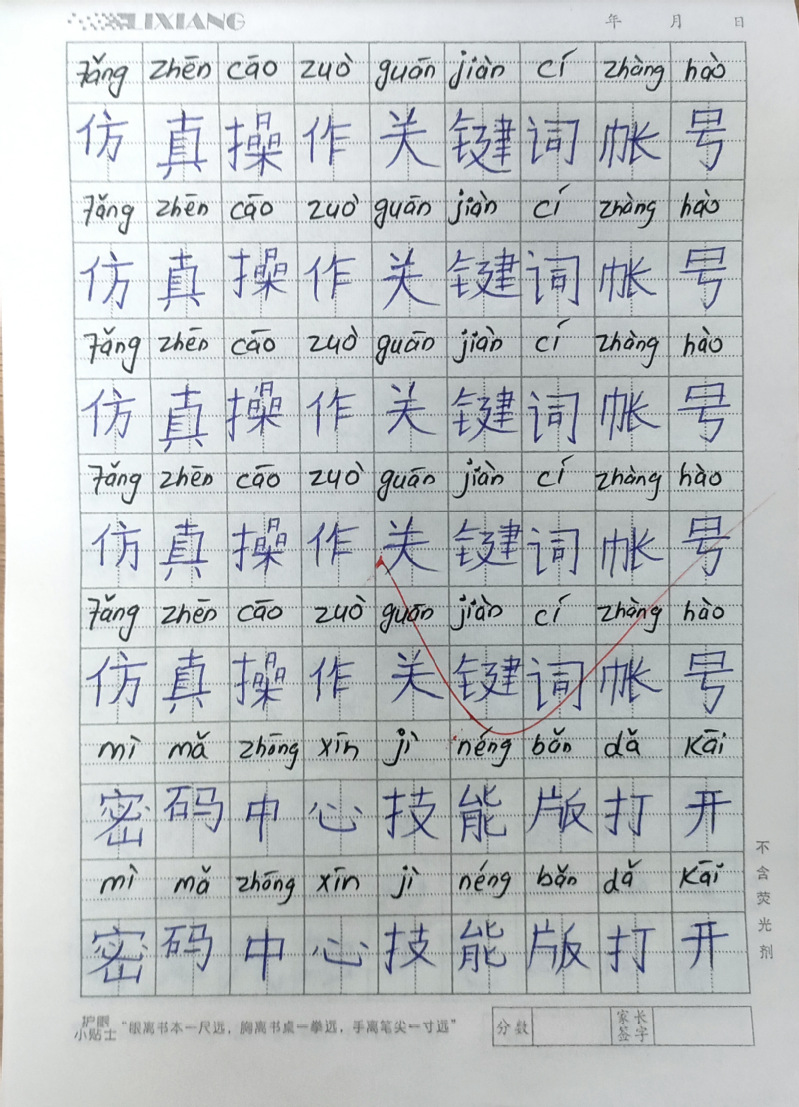 LIXIANG
年 月 日
fǎng zhēn cāo zuò guān jiàn cí zhàng hào
仿真操作关键词帐号
fǎng zhēn cāo zuò guān jiàn cí zhàng hào
仿真操作关键词帐号
fǎng zhēn cāo zuò guān jiàn cí zhàng hào
仿真操作关键词帐号
fǎng zhēn cāo zuò guān jiàn cí zhàng hào
仿真操作关键词帐号
fǎng zhēn cāo zuò guān jiàn cí zhàng hào
仿真操作关键词帐号
mì mǎ zhōng xīn jì néng bǎn dǎ kāi
密码中心技能版打开
mì mǎ zhōng xīn jì néng bǎn dǎ kāi
密码中心技能版打开
不含荧光剂
护眼小贴士 "眼离书本一尺远，胸离书桌一拳远，手离笔尖一寸远"
分数 家长签字